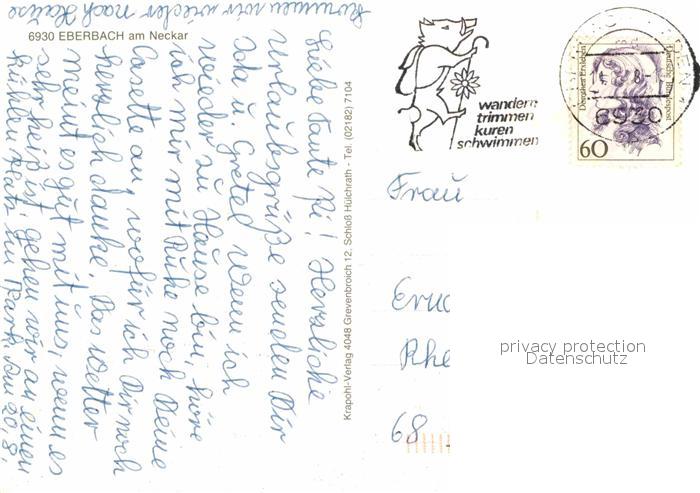 6930 EBERBACH am Neckar
Liebe Tante Pi! Herzliche
Urlaubsgrüße senden Dir
Ida u. Gretel. Wenn ich
wieder zu Hause bin, höre
ich mir mit Ruhe noch Deine
Casette an, wofür ich Dir noch
herzlich danke. Das Wetter
meint es gut mit uns, wenn es
sehr heiß ist, gehen wir an einen
kühlen Platz im Park. Am 20.8.
kommen wir wieder nach Hause
Krapohl-Verlag 4048 Grevenbroich 12, Schloß Hülchrath - Tel. (02182) 7104
wandern
trimmen
kuren
schwimmen
6930
Dorothea Erxleben
Deutsche Bundespost
60
Frau
Rhe
68
privacy protection
Datenschutz